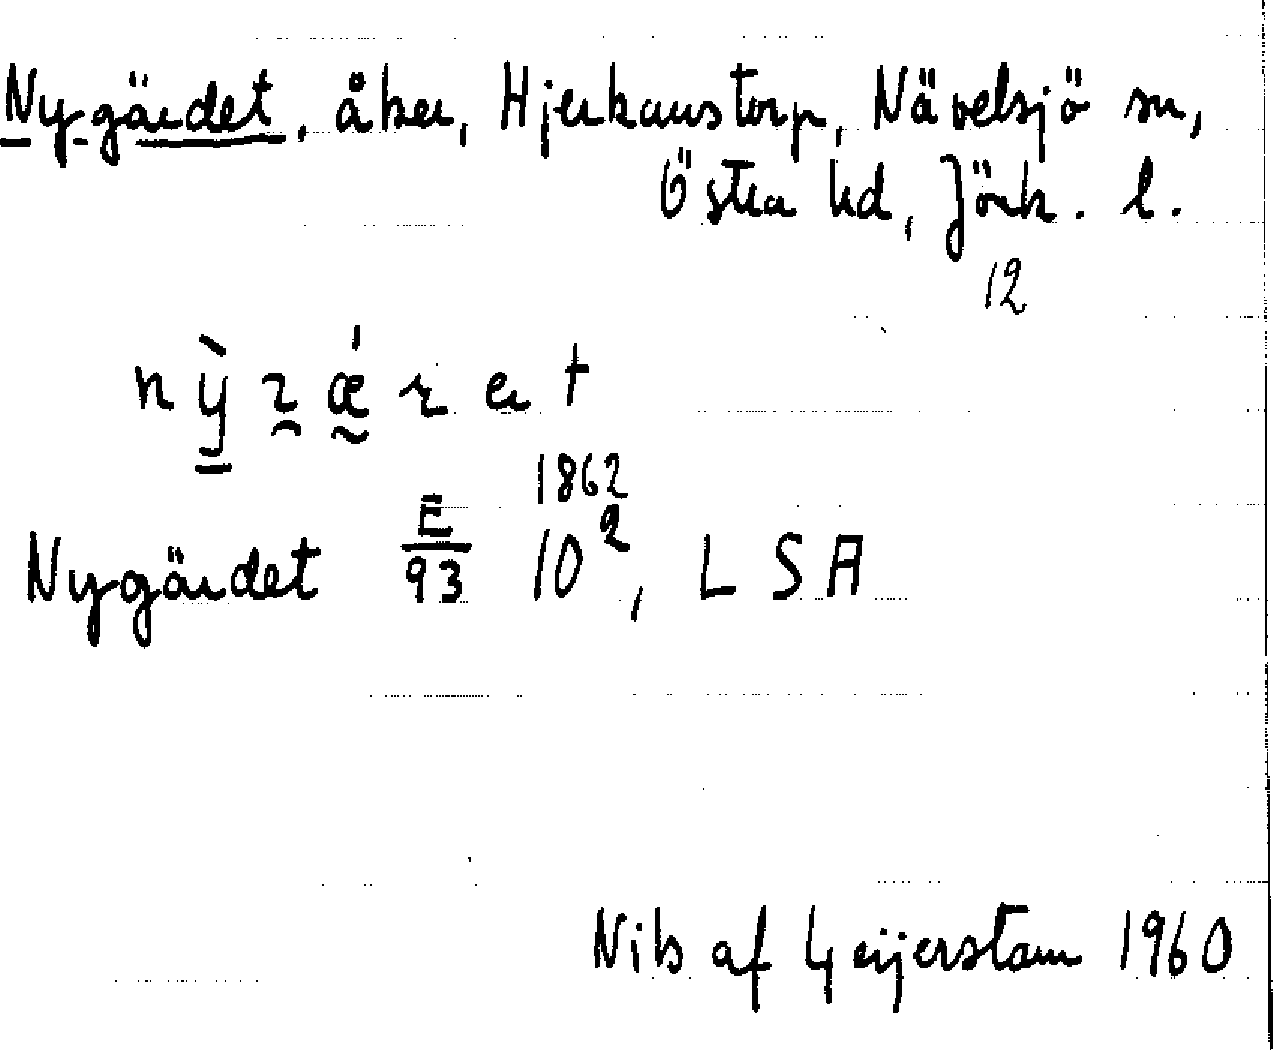 Nygärdet, åker, Hjerkanstorp, Nävelsjö sn,
Östra hd, Jönk. l.
12
1862
Nygärdet E/93 10², LSA
Nils af Geijerstam 1960